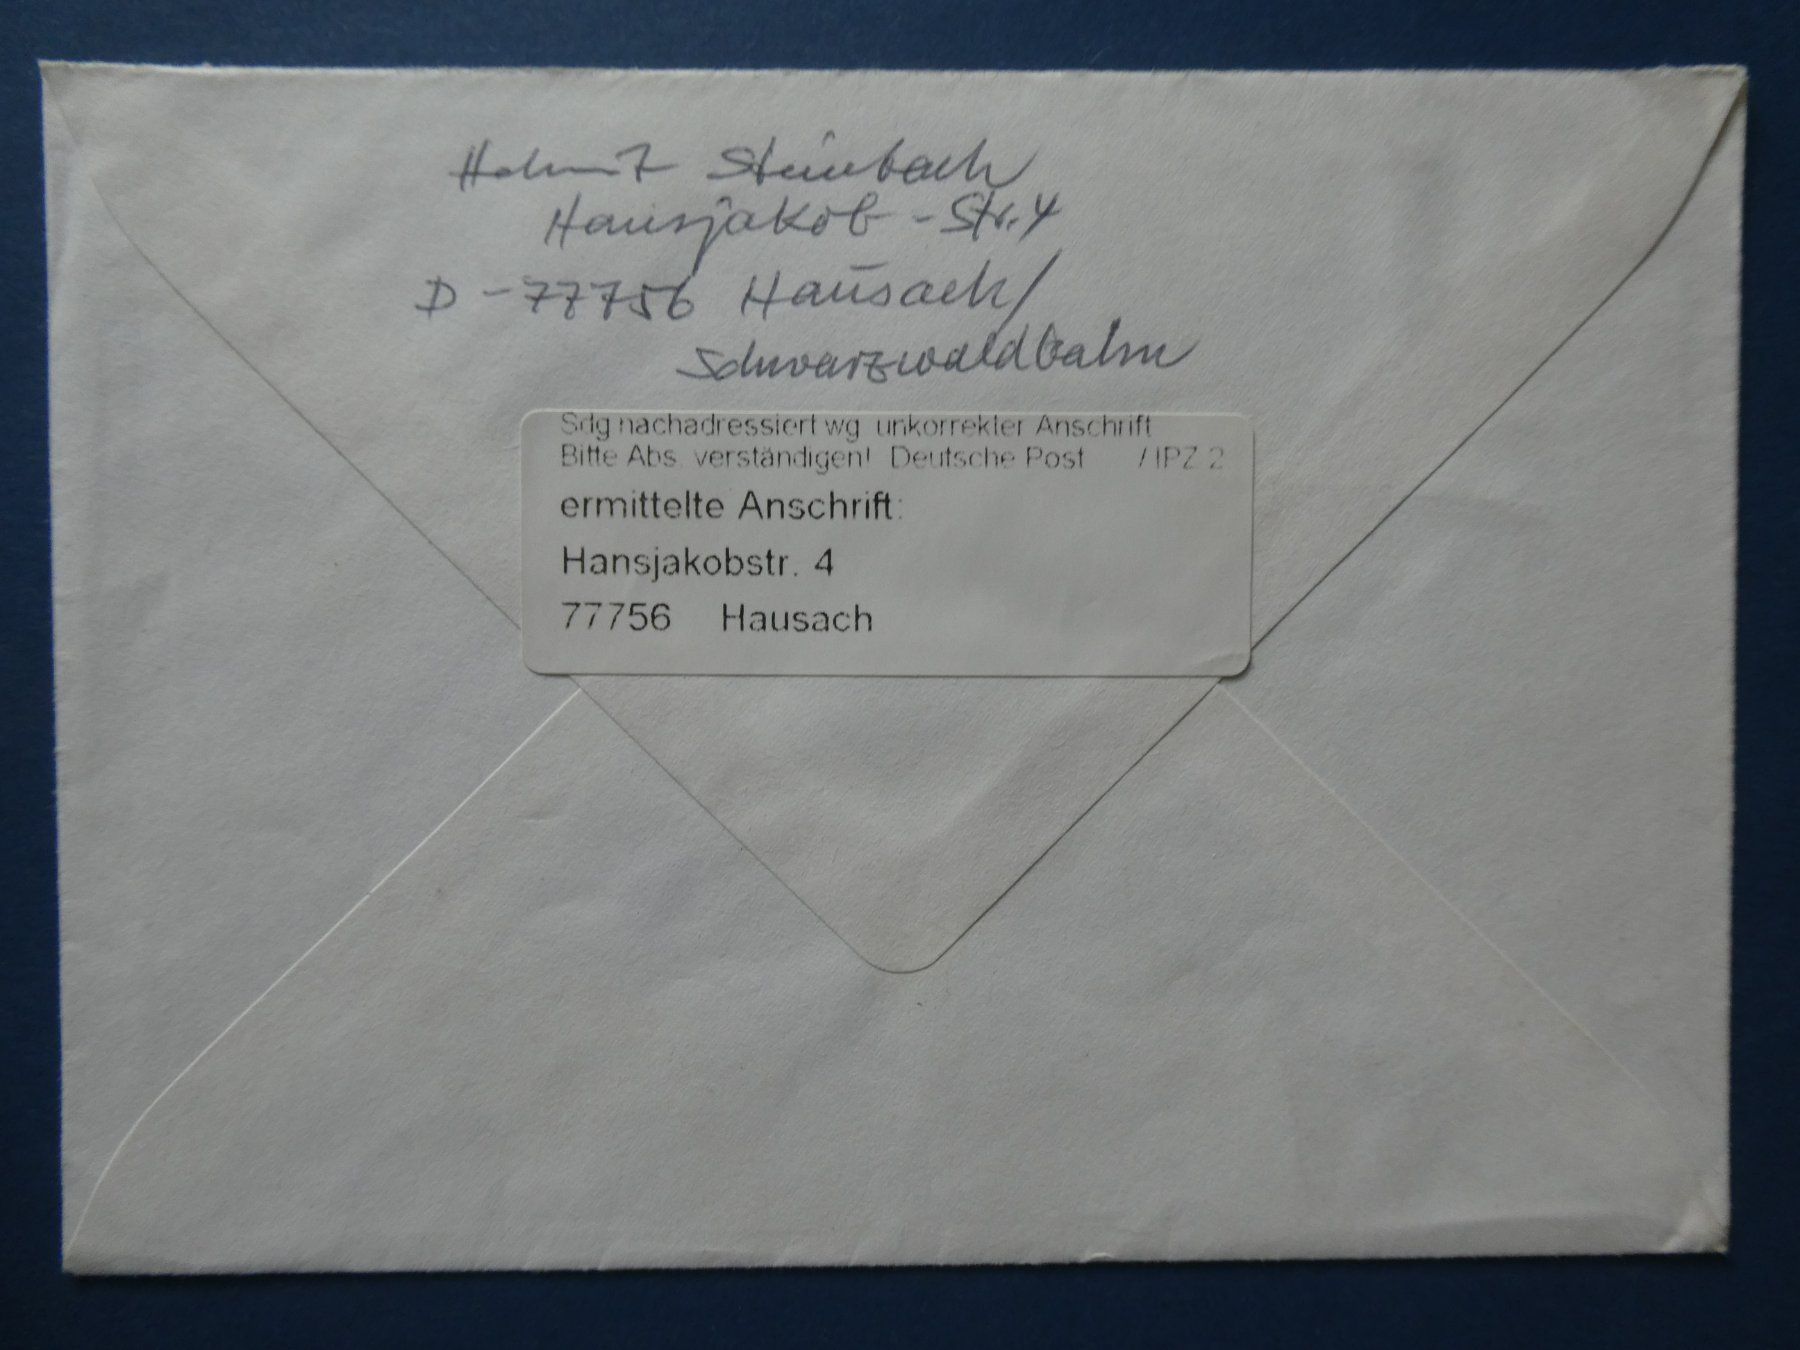 Helmut Steinbach
Hansjakob-Str. 4
D-77756 Hausach/
Schwarzwaldbahn
Sdg nachadressiert wg. unkorrekter Anschrift
Bitte Abs. verständigen! Deutsche Post / IPZ 2
ermittelte Anschrift:
Hansjakobstr. 4
77756 Hausach